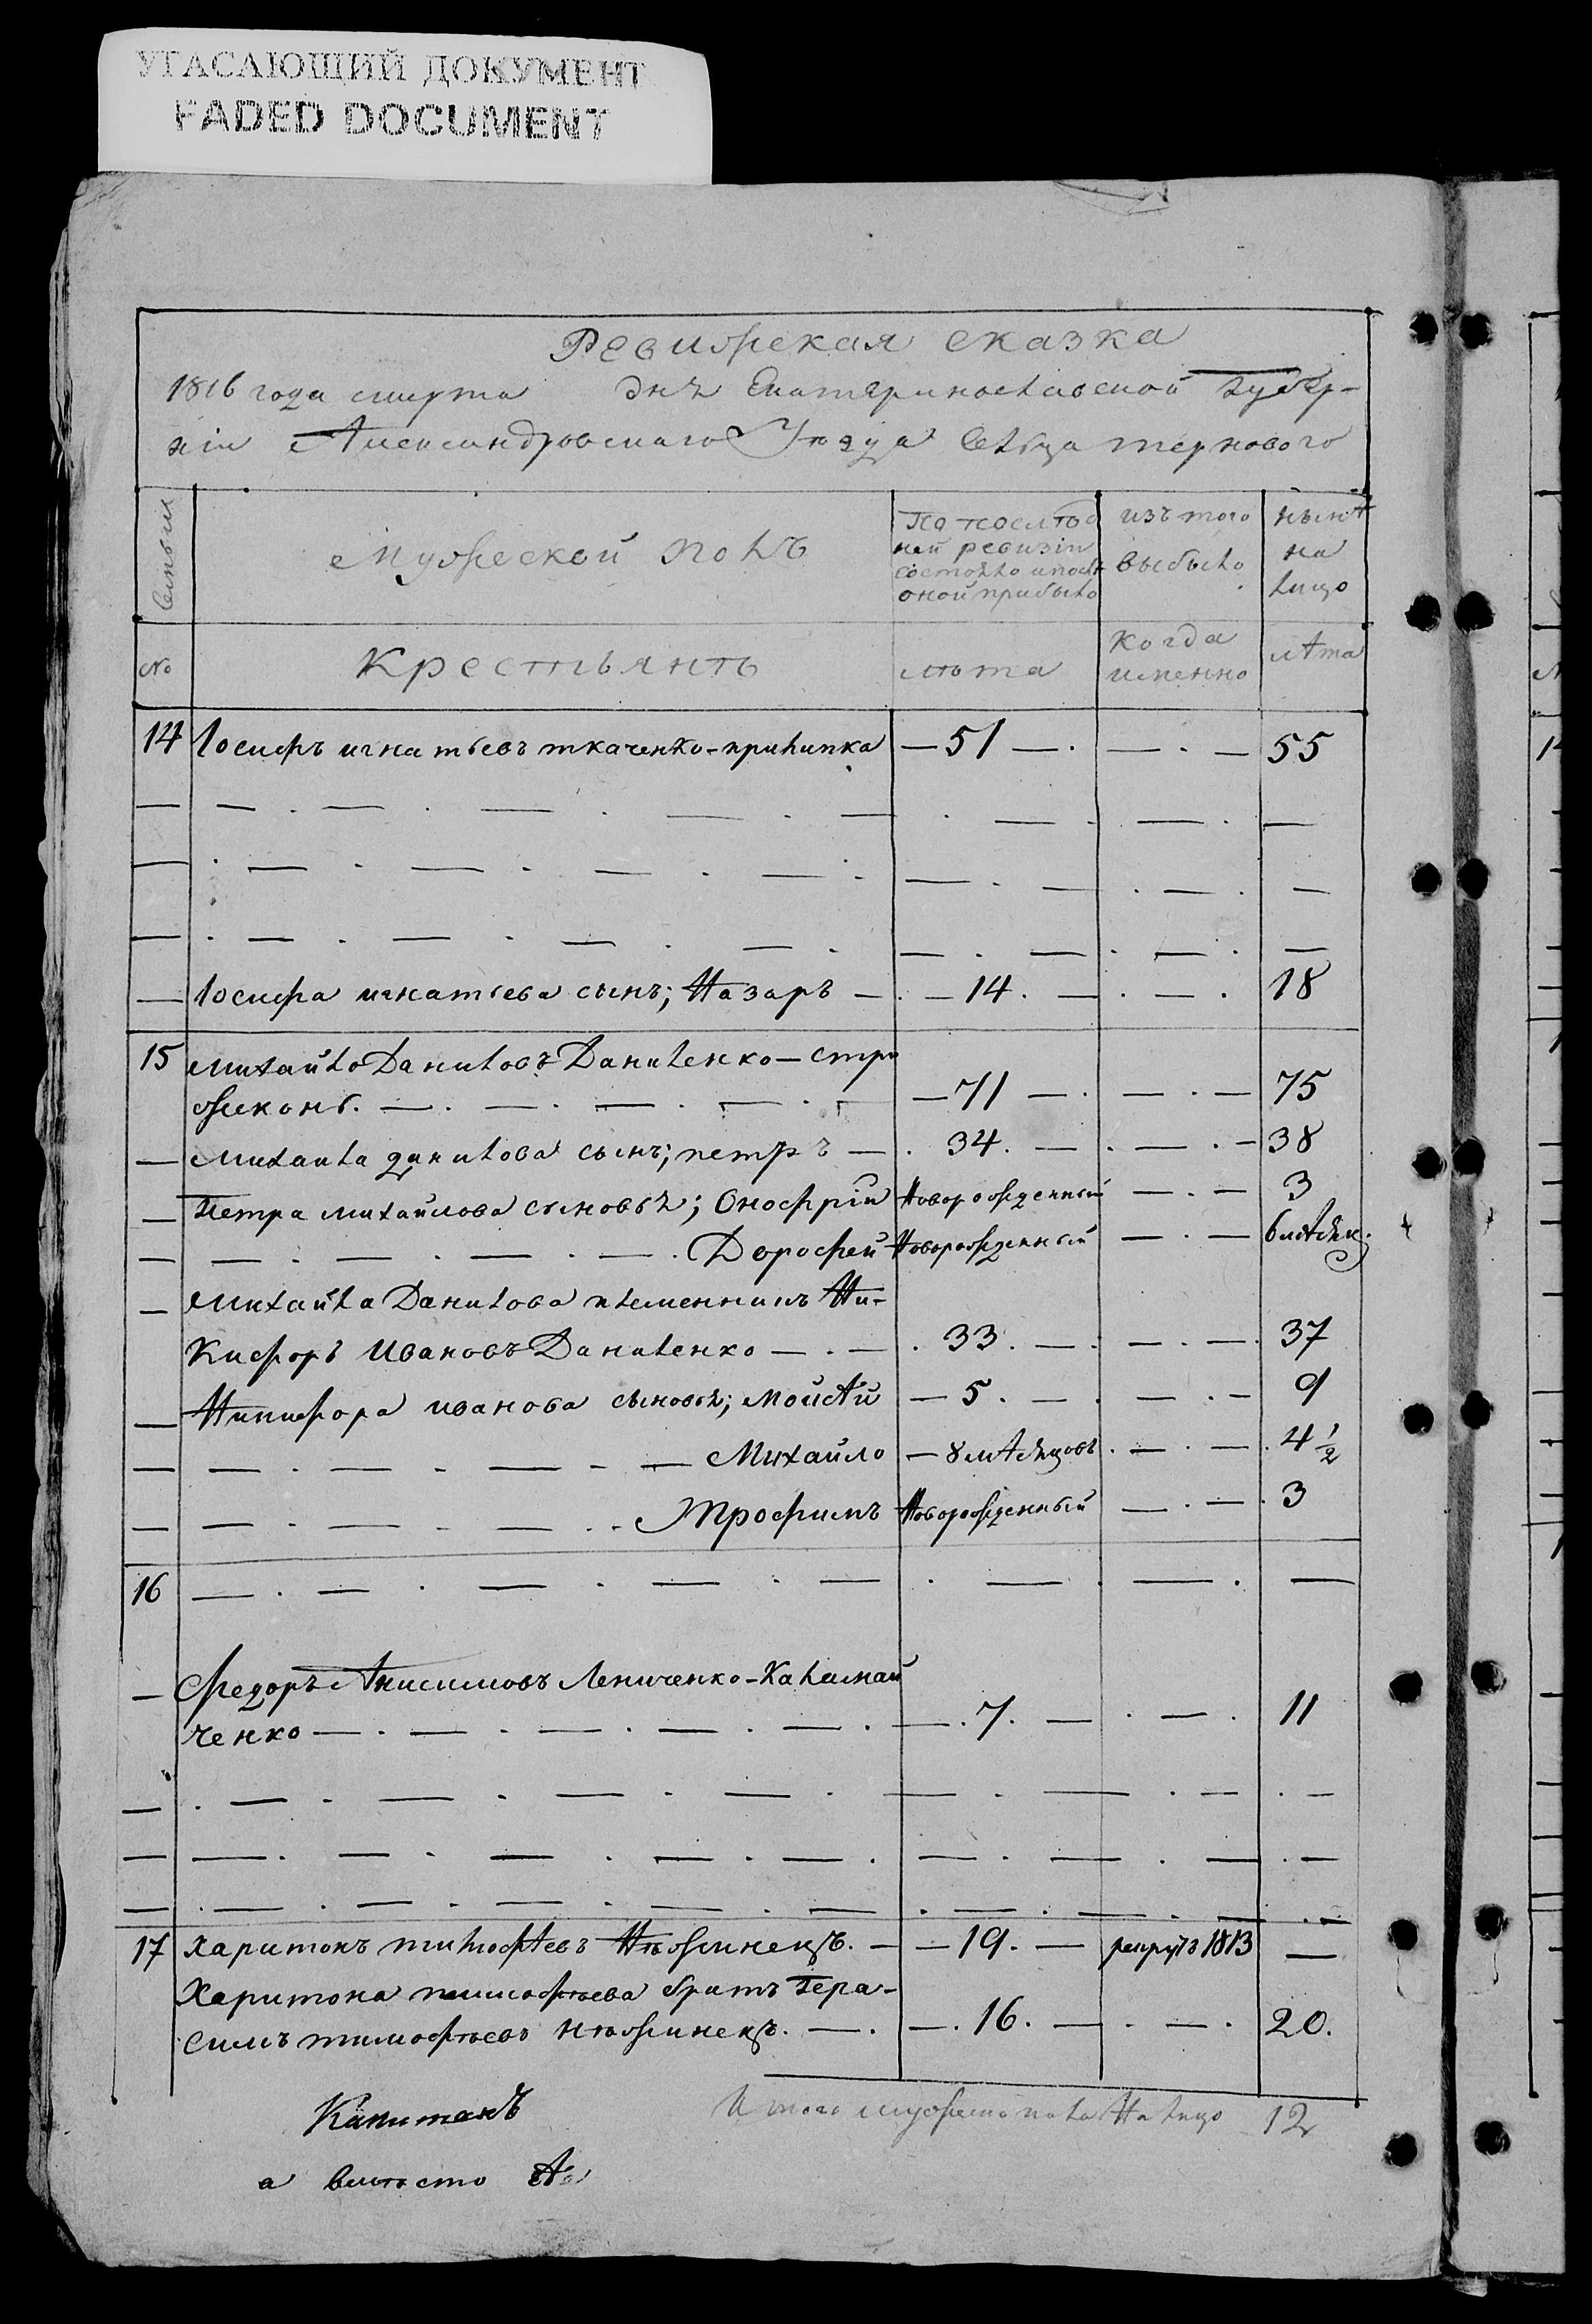 УГАСАЮЩИЙ ДОКУМЕНТ
FADED DOCUMENT
Ревижская сказка
1816 года марта дня Екатеринославской Губер-
нiи Александровскаго Уѣзда Сельца тернового
Семьи
Мужеской полъ
По послѣд
ней ревизiи
состояло и послѣ
оной прибыло
изъ того
выбыло
нынѣ
на
лицо
№
Крестьянъ
лѣта
Когда
именно
лѣта
14 Iосифъ игнатьевъ ткаченко-прилипка — 51 — . — . — 55
— Iосифа игнатьева сынъ; Назаръ — . — 14 . — . — . 18
15 Михайло Даниловъ Даниленко — стри
жиконь. — . — . — . — . — 71 — . — . — 75
— Михаила данилова сынъ; петръ — . 34 . — . — . — 38
— Петра михайлова сыновья; Онофрiй Новорожденный — . — 3
— — . — . — . — . Дорофей Новорожденный — . — 6 мѣсяц.
— Михайла Данилова племенникъ Ни-
кифоръ Ивановъ Даниленко — . — . 33 . — . — . — . 37
— Никифора иванова сыновья; Моисѣй — 5 . — . — . — 9
— — . — . — . — Михайло — 8 мѣсяцовъ . — . — . 4 1/2
— — . — . — . . Трофимъ Новорожденный — . — . 3
16
— Федоръ Анисимовъ Лениченко-Каламай
ченко — . — . — . — . — . — . 7 . — . — . 11
17 Харитонъ тимофѣевъ Нѣжинецъ. — — 19 . — рекрутъ 1813 —
Харитона тимофѣева братъ Гера-
симъ тимофѣевъ нѣжинецъ. — . — . 16 . — . — . 20.
Капитанъ
Итого мужеска пола На лицо 12
а вместо